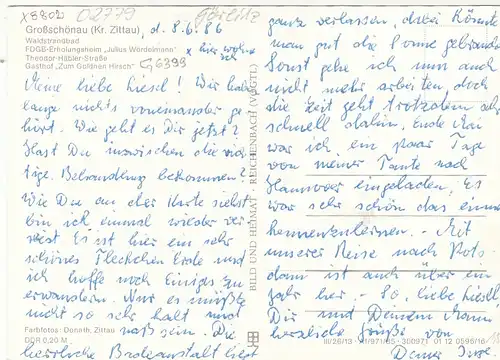 X E802 02779 Görlitz
Großschönau (Kr. Zittau) , d. 8.6.86
Waldstrandbad
FDGB-Erholungsheim „Julius Wördelmann"
x hier wohne ich
Theodor-Häbler-Straße
Gasthof „Zum Goldnen Hirsch" G6399
Meine liebe Liesel! Wir haben
lange nichts voneinander ge
hört. Wie geht es Dir jetzt?
Hast Du inzwischen die rich
tige Behandlung bekommen?
Wie Du an der Karte siehst
bin ich einmal wieder ver
reist. Es ist hier ein sehr
schönes Fleckchen Erde und
ich hoffe noch Einiges zu
erwandern. Nur es müßte
nicht so sehr kalt und
naß sein. Die
herrliche Badeanstalt liegt
Farbfotos: Donath, Zittau
DDR 0,20 M
BILD UND HEIMAT · REICHENBACH (VOGTL)
ganz verlassen, drei Könnte
man gut die Sonne gebrauchen
Sonst gehe ich nun auch
nicht mehr arbeiten, doch
die Zeit geht trotzdem sehr
schnell dahin. Ende Mai
war ich ein paar Tage
von meiner Tante nach
Hannover eingeladen. Es
war sehr schön das einmal
kennenzulernen. - Mit
unserer Reise nach Pots
dam ist auch über ein
Jahr her. - So, liebe Liesel
Dir und Deinem Mann
herzliche Grüße von
Deiner
III/26/13 A1/971/85 300971 01 12 0596/16